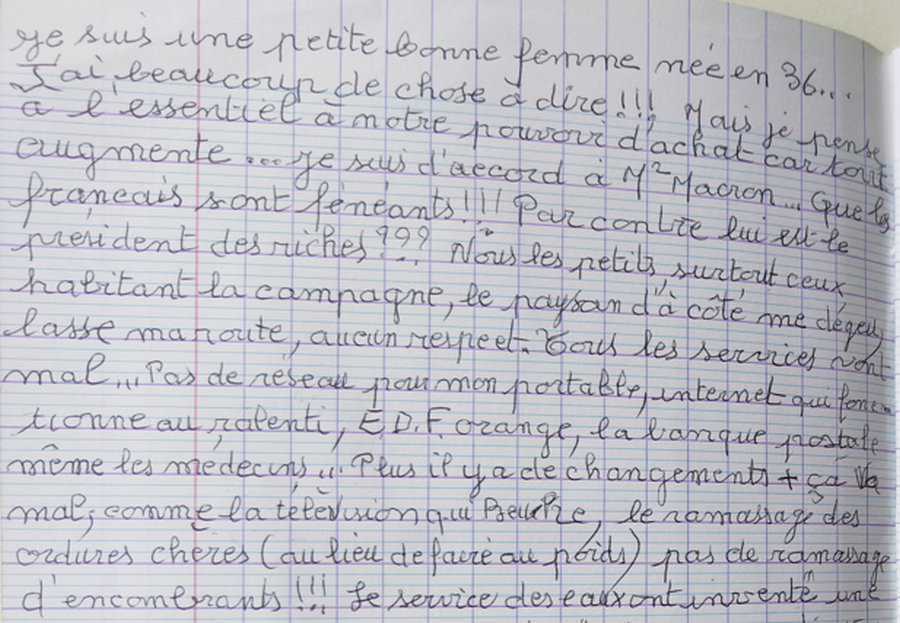 Je suis une petite bonne femme née en 36...
J'ai beaucoup de chose à dire !!! Mais je pense
à l'essentiel à notre pouvoir d'achat car tout
augmente... Je suis d'accord à Mr Macron... Que les
français sont fénéants !!! Par contre lui est le
président des riches ??? Nous les petits, surtout ceux
habitant la campagne, le paysan d'à côté me dégeu
lasse ma route, aucun respect. Tous les services vont
mal... Pas de réseau pour mon portable, internet qui fonc
tionne au ralenti, E.D.F. orange, la banque postale
même les médecins... Plus il y a de changements + ça va
mal, comme la télévision qui le ramassage des
ordures chères (au lieu de faire au poids) pas de ramassage
d'encombrants !!! Le service des eaux ont inventé une